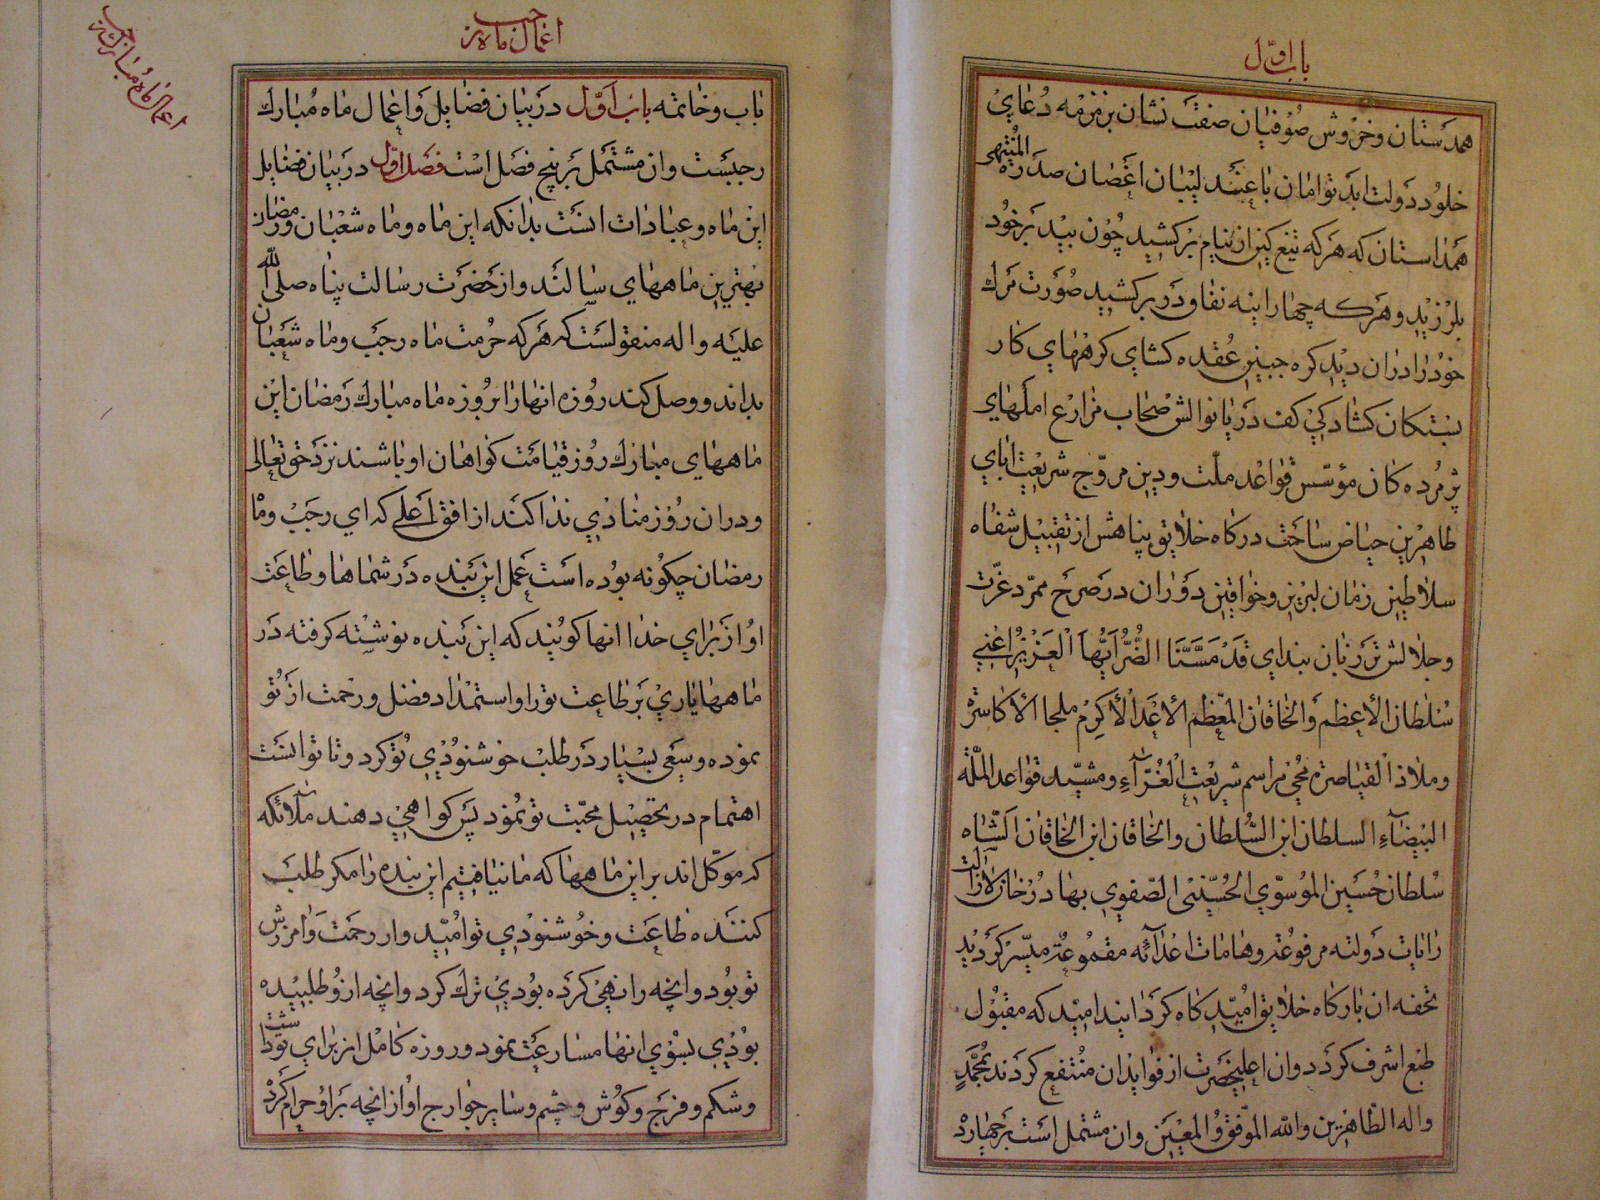 باب اوّل
همدستان وخروش صوفيان صفت نشان بزمزمه دعاي
خلود دولت ابد توامان با عندليبان اغصان صدرة المنتهى
همداستان كه هركه تيغ كين از نيام بركشيد چون بيد برخود
بلرزيد وهركه چهار اينه نفاق در بركشيد صورت مرك
خود را دران ديد كره جبين عقده كشاي كرههاي كار
بستكان كشادكي كف دريا نوالش سحاب مزارع املهاي
پژمرده كان مؤسّس قواعد ملّت ودين مروّج شريعت اباي
طاهرين حياض ساحت دركاه خلايق پناهش از تقبيل شفاه
سلاطين زمان لبريز وخواقين دوران در صرح ممرّد عزّت
وجلالش تر زبان بنداي قَدْ مَسَّنَا الضُّرُّ اَيُّهَا الْعَزِيزُ اعني
سلطان الأعظم والخاقان المعظم الأعدل الأكرم ملجا الأكاسرة
وملاذ القياصرة محيي مراسم شريعت الغرّآء ومشيّد قواعد الملّة
البيضآء السلطان ابن السّلطان والخاقان ابن الخاقان الشّاه
سلطان حسين الموسوّي الحسيني الصّفوي بهادر خان لازالت
رايات دولته مرفوعة وهامات اعدآئه مقموعة ميسّر كرديد
تحفه ان باركاه خلايق اميّد كاه كردانيد اميد كه مقبول
طبع اشرف كردد وان اعليحضرت از فوايد ان منتفع كردند بمحمّدٍ
واله الطّاهرين والله الموّفق والمعين وان مشتمل است برچهارده
اعمال ماه رجب
اعمال ماه مبارك رجب
باب وخاتمه باب اوّل در بيان فضايل واعمال ماه مبارك
رجبست وان مشتمل بر پنج فصل است فصل اوّل در بيان فضايل
اين ماه وعبادات انست بدانكه اين ماه وماه شعبان ورمضان
بهترين ماههاي سالند واز حضرت رسالت پناه صلى الله
عليه واله منقولست كه هركه حرمت ماه رجب وماه شعبان
بداند ووصل كند روزه انها را بروزه ماه مبارك رمضان اين
ماههاي مبارك روز قيامت كواهان او باشند نزد حق تعالى
ودران روز منادي ندا كند از افق اعلي كه اي رجب وماه
رمضان چكونه بوده است عمل اين بنده در شماها وطاعت
او از براي خدا انها كويند كه اين بنده توشه كرفته در
ماهها ياري بر طاعت تورا واستمداد فضل ورحمت از تو
نموده وسعى بسيار در طلب خوشنودي تو كرد وتا توانست
اهتمام در تحصيل محبّت تو نمود پس كواهي دهند ملآئكه
كه موكّل اند بر اين ماهها كه ما نيافتيم اين بنده را مكر طلب
كننده طاعت وخوشنودي تو اميّد وار رحمت وامرزش
تو بود وانچه را نهي كرده بودي ترك كرد وانچه ازو طلبيده
بودي بسوي انها مسارعت نمود وروزه كامل از براي تو داشت
وشكم وفرج وكوش وچشم وساير جوارح او از انچه بر او حرام كرد